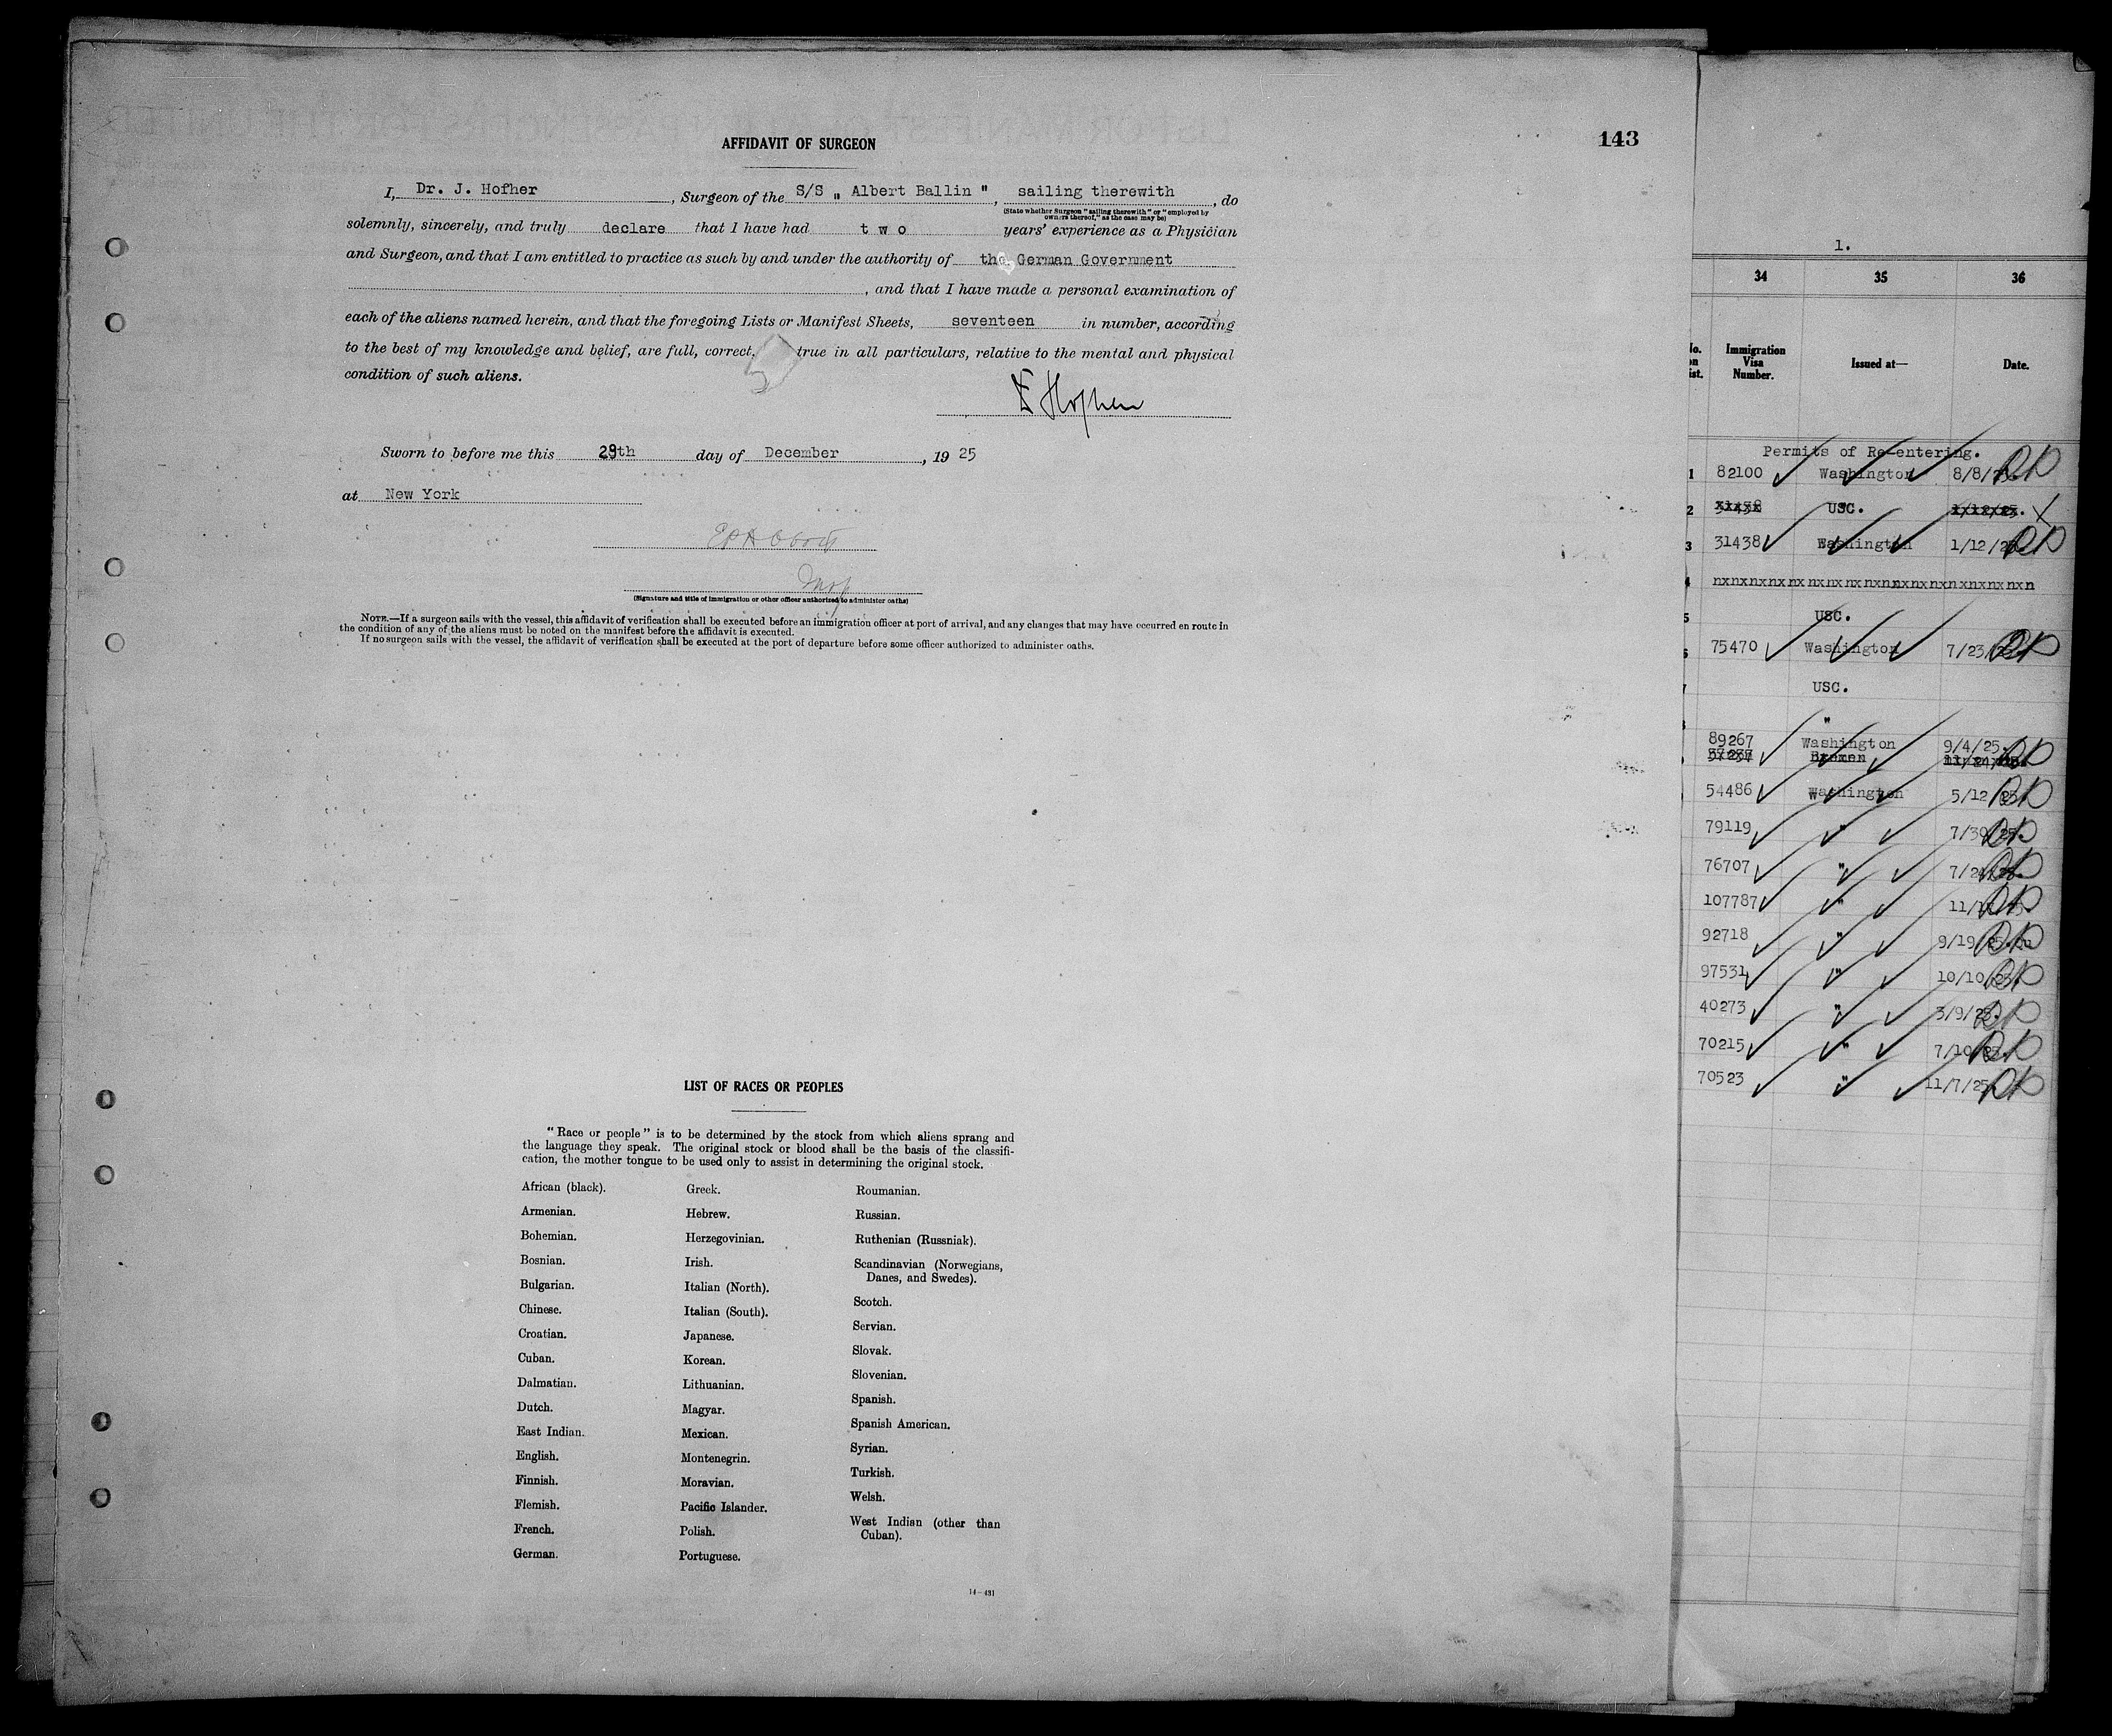 AFFIDAVIT OF SURGEON
143
I, Dr. J. Hofher, Surgeon of the S/S „ Albert Ballin ", sailing therewith, do
(State whether Surgeon "sailing therewith" or "employed by
owners thereof," as the case may be)
solemnly, sincerely, and truly declare that I have had t w o years' experience as a Physician
and Surgeon, and that I am entitled to practice as such by and under the authority of the German Government
, and that I have made a personal examination of
each of the aliens named herein, and that the foregoing Lists or Manifest Sheets, seventeen in number, according
to the best of my knowledge and belief, are full, correct, true in all particulars, relative to the mental and physical
condition of such aliens.
Hofher
Sworn to before me this 29th day of December, 19 25
at New York
(Signature and title of immigration or other officer authorized to administer oaths)
NOTE.—If a surgeon sails with the vessel, this affidavit of verification shall be executed before an immigration officer at port of arrival, and any changes that may have occurred en route in
the condition of any of the aliens must be noted on the manifest before the affidavit is executed.
If no surgeon sails with the vessel, the affidavit of verification shall be executed at the port of departure before some officer authorized to administer oaths.
LIST OF RACES OR PEOPLES
"Race or people" is to be determined by the stock from which aliens sprang and
the language they speak. The original stock or blood shall be the basis of the classifi-
cation, the mother tongue to be used only to assist in determining the original stock.
African (black).
Armenian.
Bohemian.
Bosnian.
Bulgarian.
Chinese.
Croatian.
Cuban.
Dalmatian.
Dutch.
East Indian.
English.
Finnish.
Flemish.
French.
German.
Greek.
Hebrew.
Herzegovinian.
Irish.
Italian (North).
Italian (South).
Japanese.
Korean.
Lithuanian.
Magyar.
Mexican.
Montenegrin.
Moravian.
Pacific Islander.
Polish.
Portuguese.
Roumanian.
Russian.
Ruthenian (Russniak).
Scandinavian (Norwegians,
Danes, and Swedes).
Scotch.
Servian.
Slovak.
Slovenian.
Spanish.
Spanish American.
Syrian.
Turkish.
Welsh.
West Indian (other than
Cuban).
14—431
1.
34 35 36
Immigration
Visa
Number.
Issued at—
Date.
Permits of Re-entering.
1 82100 Washington 8/8/25.
2 31438 USC. 1/12/25.
3 31438 Washington 1/12/25
nxnxnxnxnxnxnxnxnxnxnxnxnxnxnxn
5 USC.
75470 Washington 7/23/25.
USC.
"
89267 Washington 9/4/25.
57237 Bremen
54486 Washington 5/12/25
79119 " 7/30/25.
76707 " 7/24/25.
107787 "
92718 " 9/19/25.
97531 " 10/10/25.
40273 " 3/9/25.
70215 " 7/10/25.
70523 " 11/7/25.